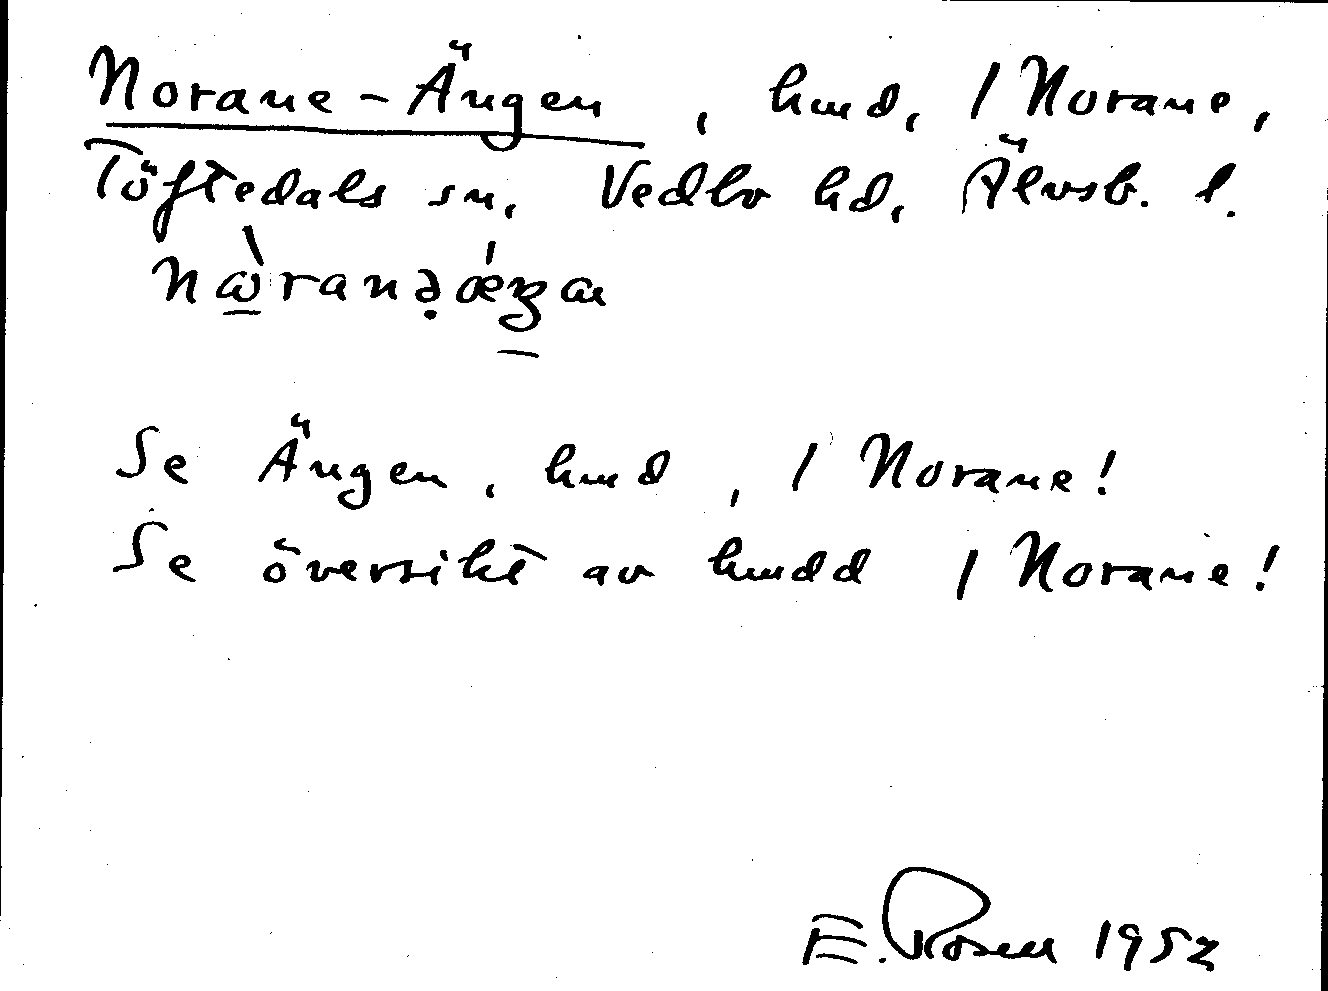 Norane-Ängen, hmd, / Norane,
Töftedals sn, Vedbo hd, Älvsb. l.
Se Ängen, hmd, / Norane!
Se översikt av hmdd / Norane!
E. Rosell 1952